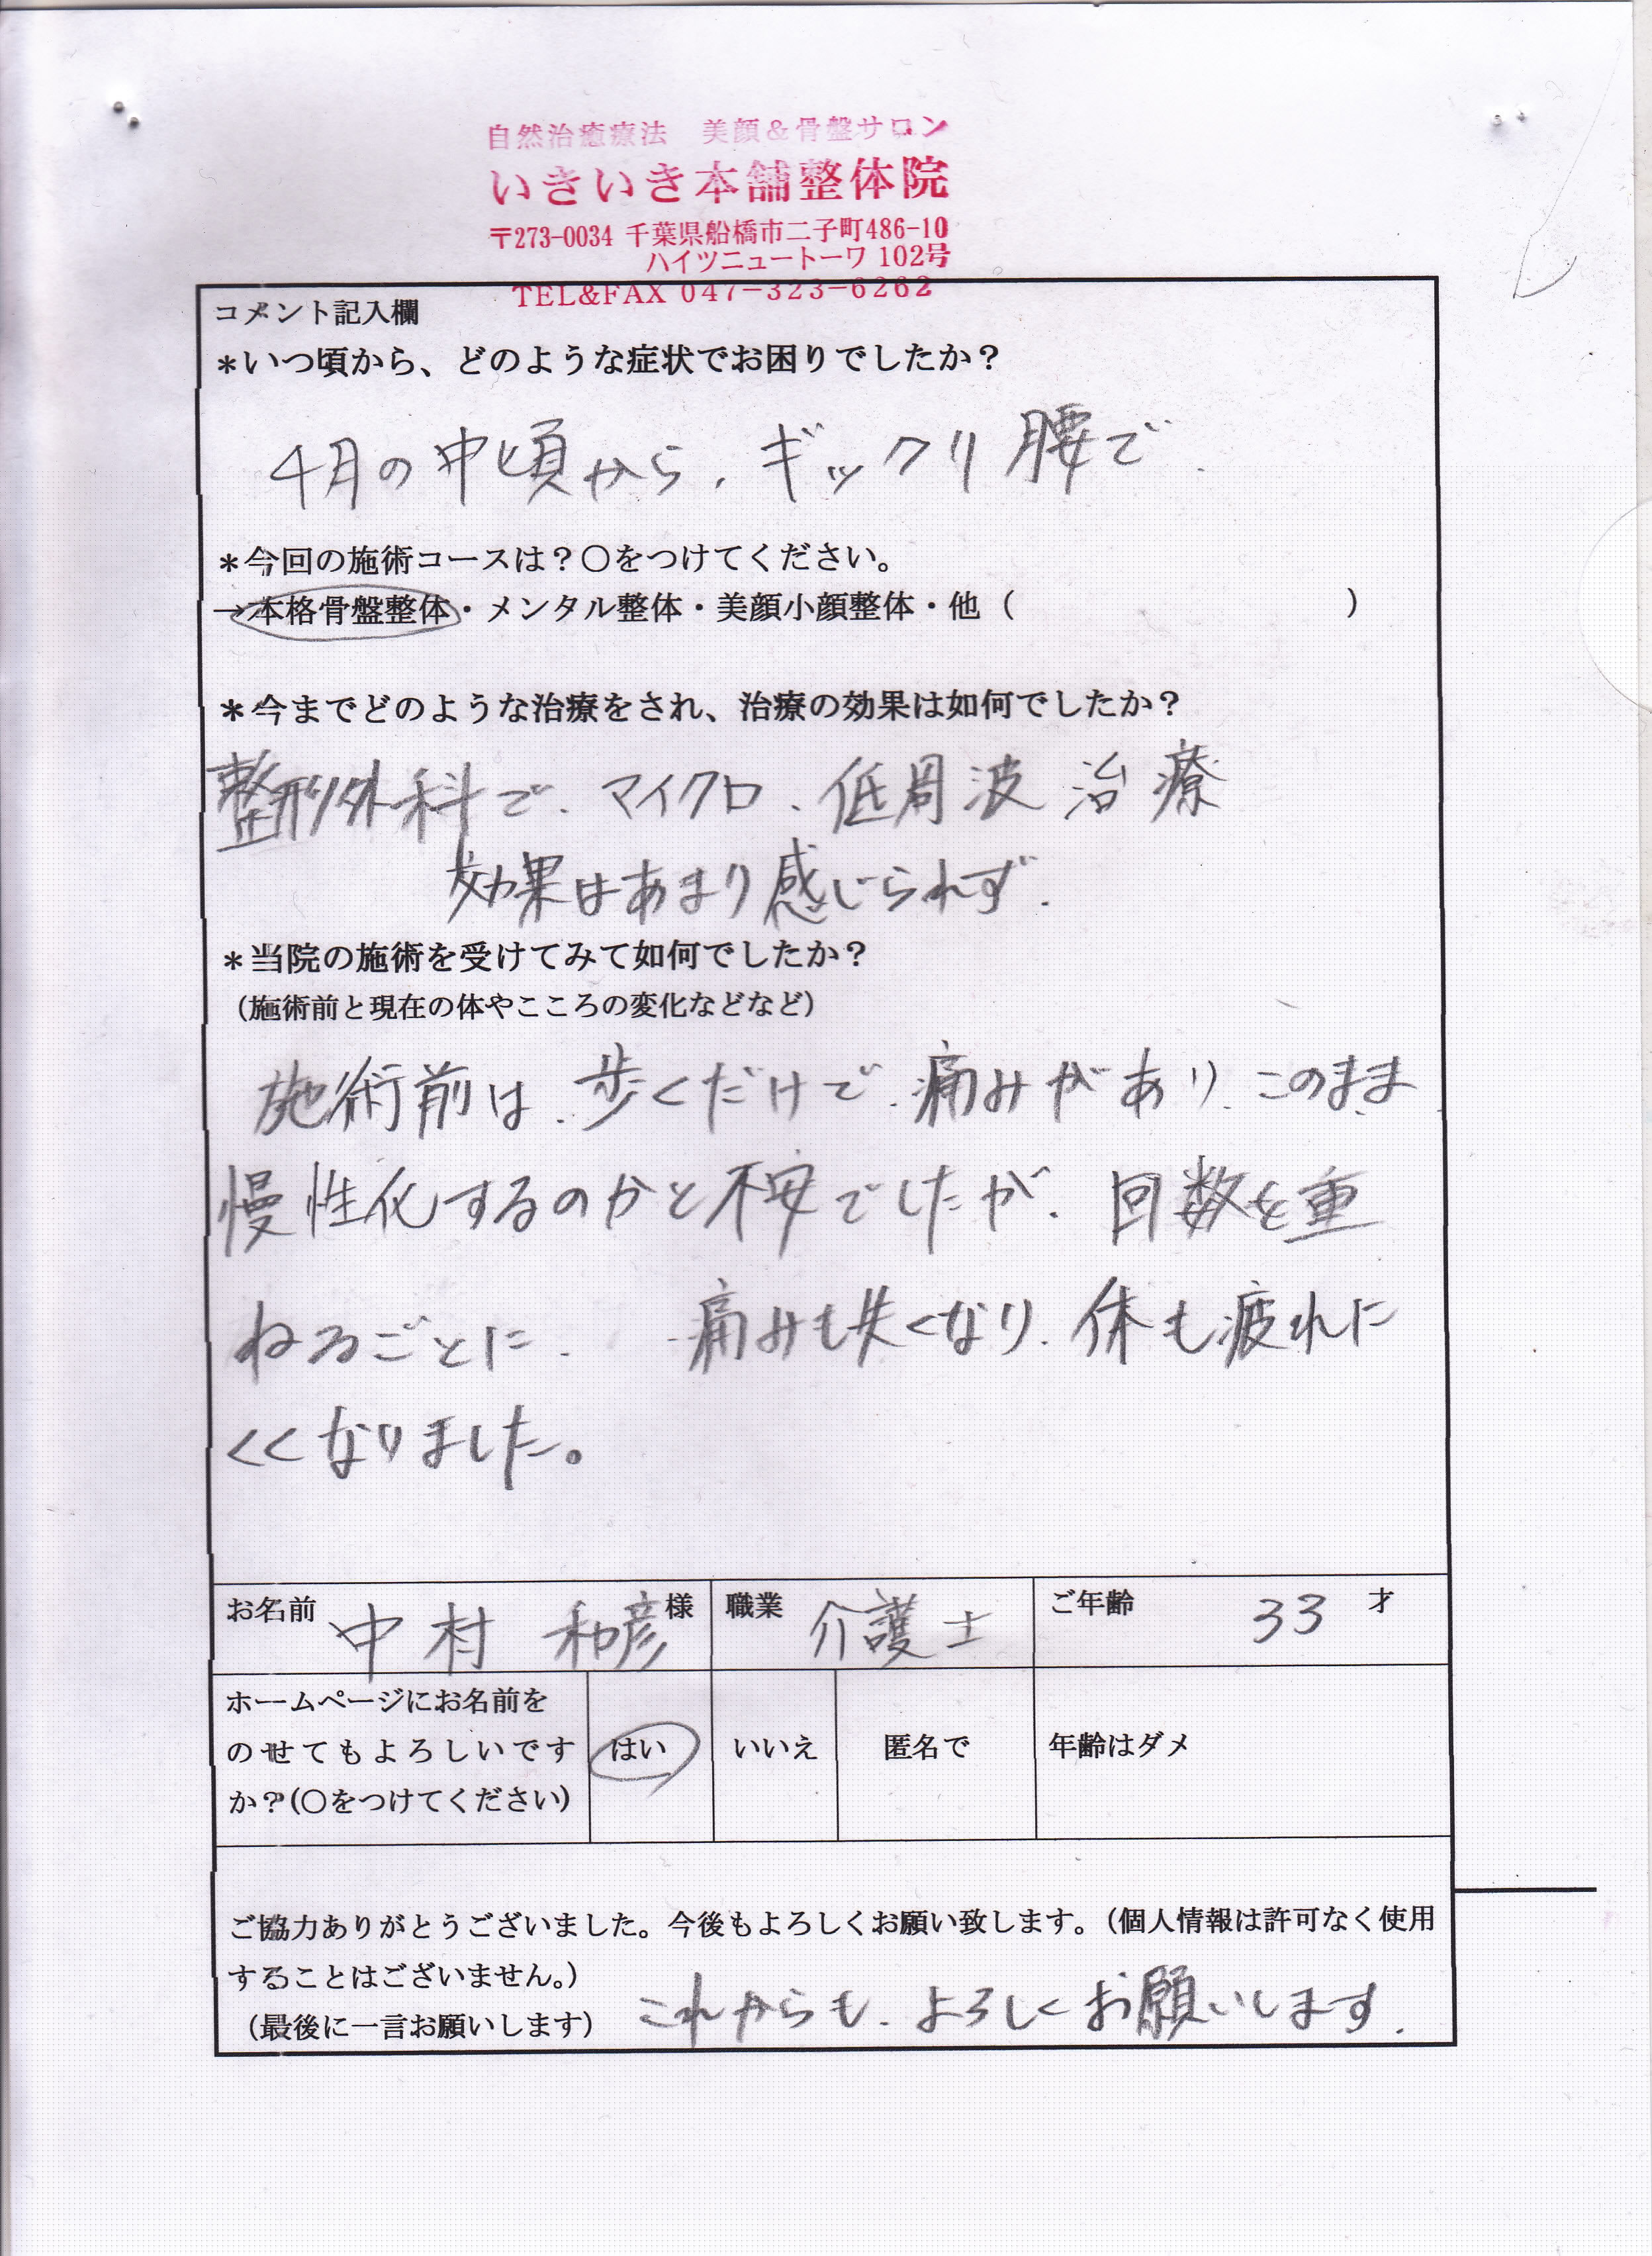 自然治癒療法 美顔＆骨盤サロン
いきいき本舗整体院
〒273-0034 千葉県船橋市二子町486-10
ハイツニュートーワ 102号
TEL&FAX 047-323-6262
コメント記入欄
＊いつ頃から、どのような症状でお困りでしたか？
4月の中頃から、ギックリ腰で、
＊今回の施術コースは？〇をつけてください。
→本格骨盤整体・メンタル整体・美顔小顔整体・他（　　　　　　　）
＊今までどのような治療をされ、治療の効果は如何でしたか？
整形外科で、マイクロ、低周波治療
効果はあまり感じられず、
＊当院の施術を受けてみて如何でしたか？
（施術前と現在の体やこころの変化などなど）
施術前は、歩くだけで、痛みがあり、このまま
慢性化するのかと不安でしたが、回数を重
ねるごとに、 痛みも失くなり、体も疲れに
くくなりました。
お名前 中村 和彦 様 職業 介護士 ご年齢 33 才
ホームページにお名前を
のせてもよろしいです はい いいえ 匿名で 年齢はダメ
か？（〇をつけてください）
ご協力ありがとうございました。今後もよろしくお願い致します。（個人情報は許可なく使用
することはございません。）
（最後に一言お願いします） これからも、よろしくお願いします、